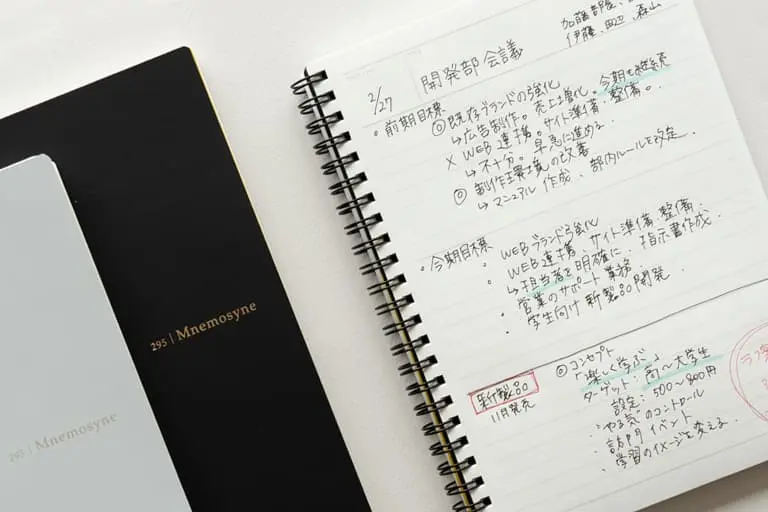 加藤部長、
伊藤、田辺、森山
2/27
開発部会議
・前期目標
◎ 既存ブランドの強化
↳ 広告制作。売上増化。今期も継続
× WEB連携。サイト準備、整備。
↳ 不十分。早急に進める
◎ 制作環境の改善
↳ マニュアル作成、部内ルールを改定
・今期目標
・WEBブランド強化
・WEB連携、サイト準備、整備、
↳ 担当者を明確に。指示書作成。
・営業のサポート業務
・学生向け新製品開発。
新製品
11月発売
◎ コンセプト
「楽しく学ぶ」
ターゲット：高〜大学生
設定：500〜800円
・"やる気"のコントロール
・訪問イベント
・学習のイメージを変える。
295 | Mnemosyne
293 | Mnemosyne